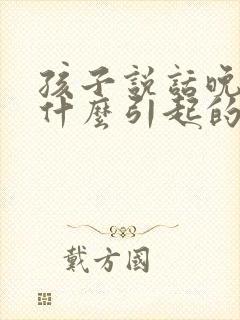 孩子説話晚
什麼引起的
戴方國